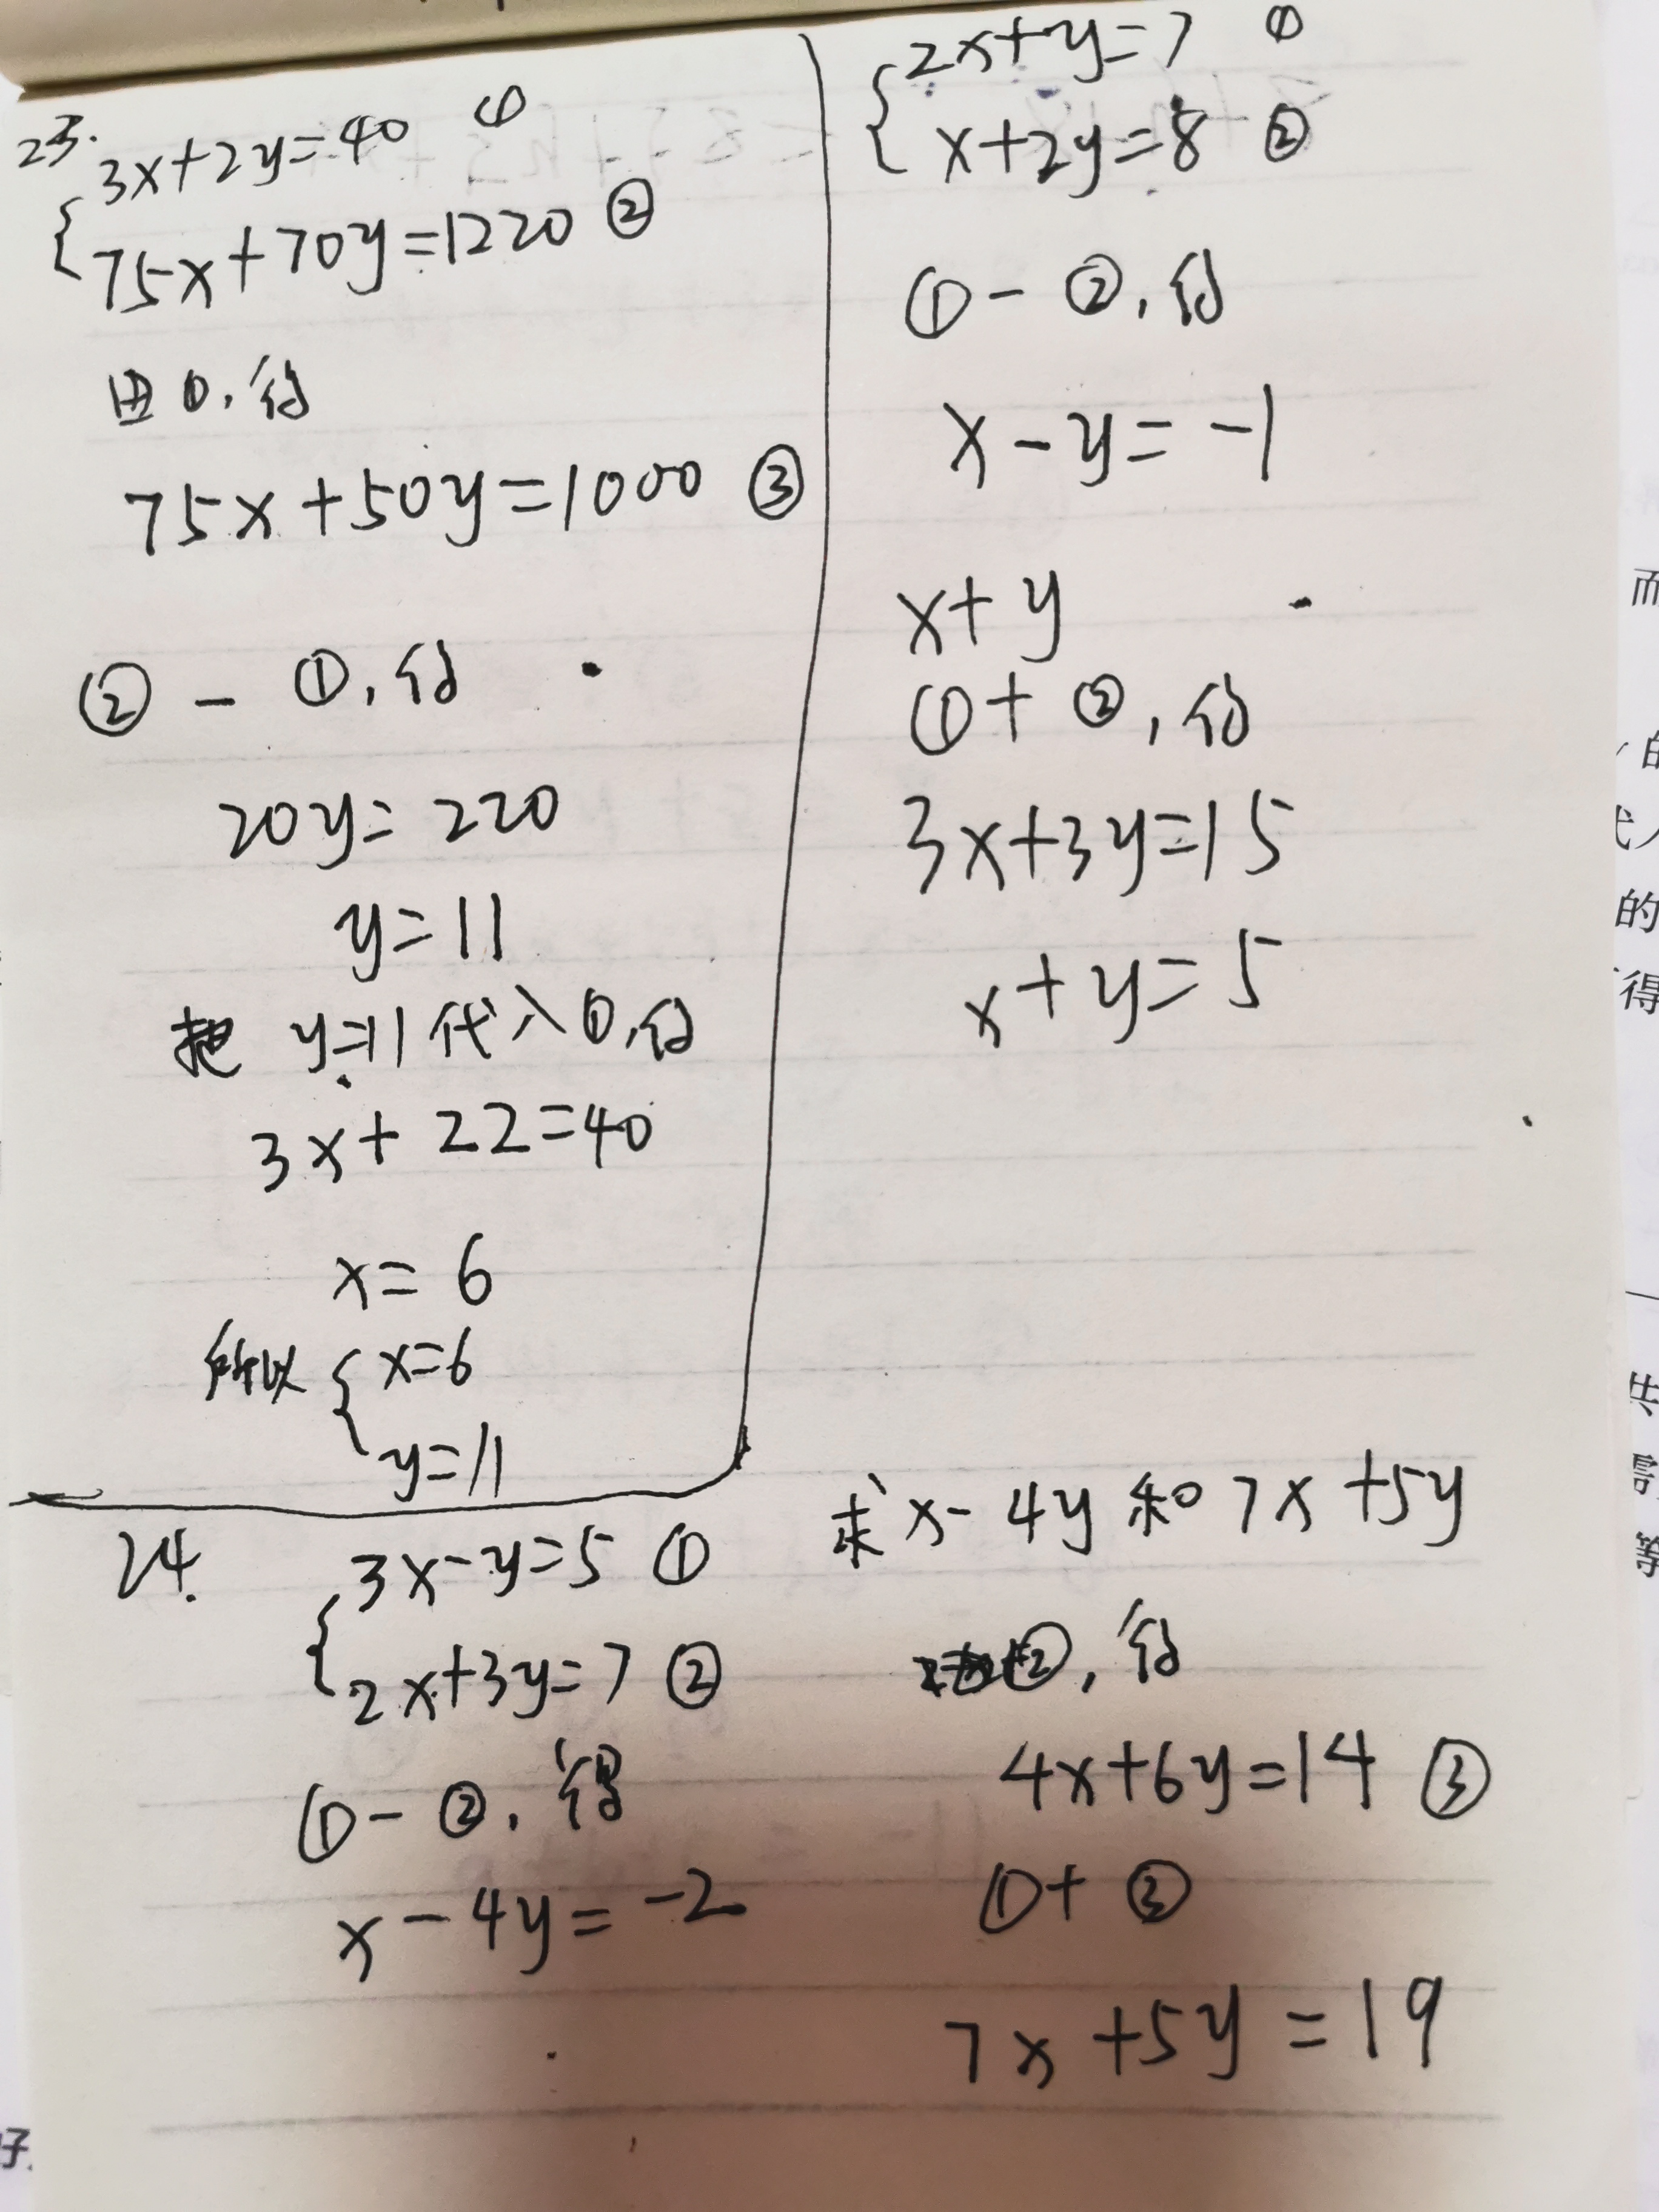 23.
3x+2y=40 ①
75x+70y=1220 ②
由①,得
75x+50y=1000 ③
② - ①,得
20y=220
y=11
把 y=11代入①,得
3x+22=40
x=6
所以 { x=6
y=11
2x+y=7 ①
x+2y=8 ②
①-②,得
x-y=-1
x+y
①+②,得
3x+3y=15
x+y=5
24.
3x-y=5 ①
2x+3y=7 ②
①-②,得
x-4y=-2
求x-4y和7x+5y
②,得
4x+6y=14 ③
①+③
7x+5y=19
而
的
的
得
共
需
等
好.